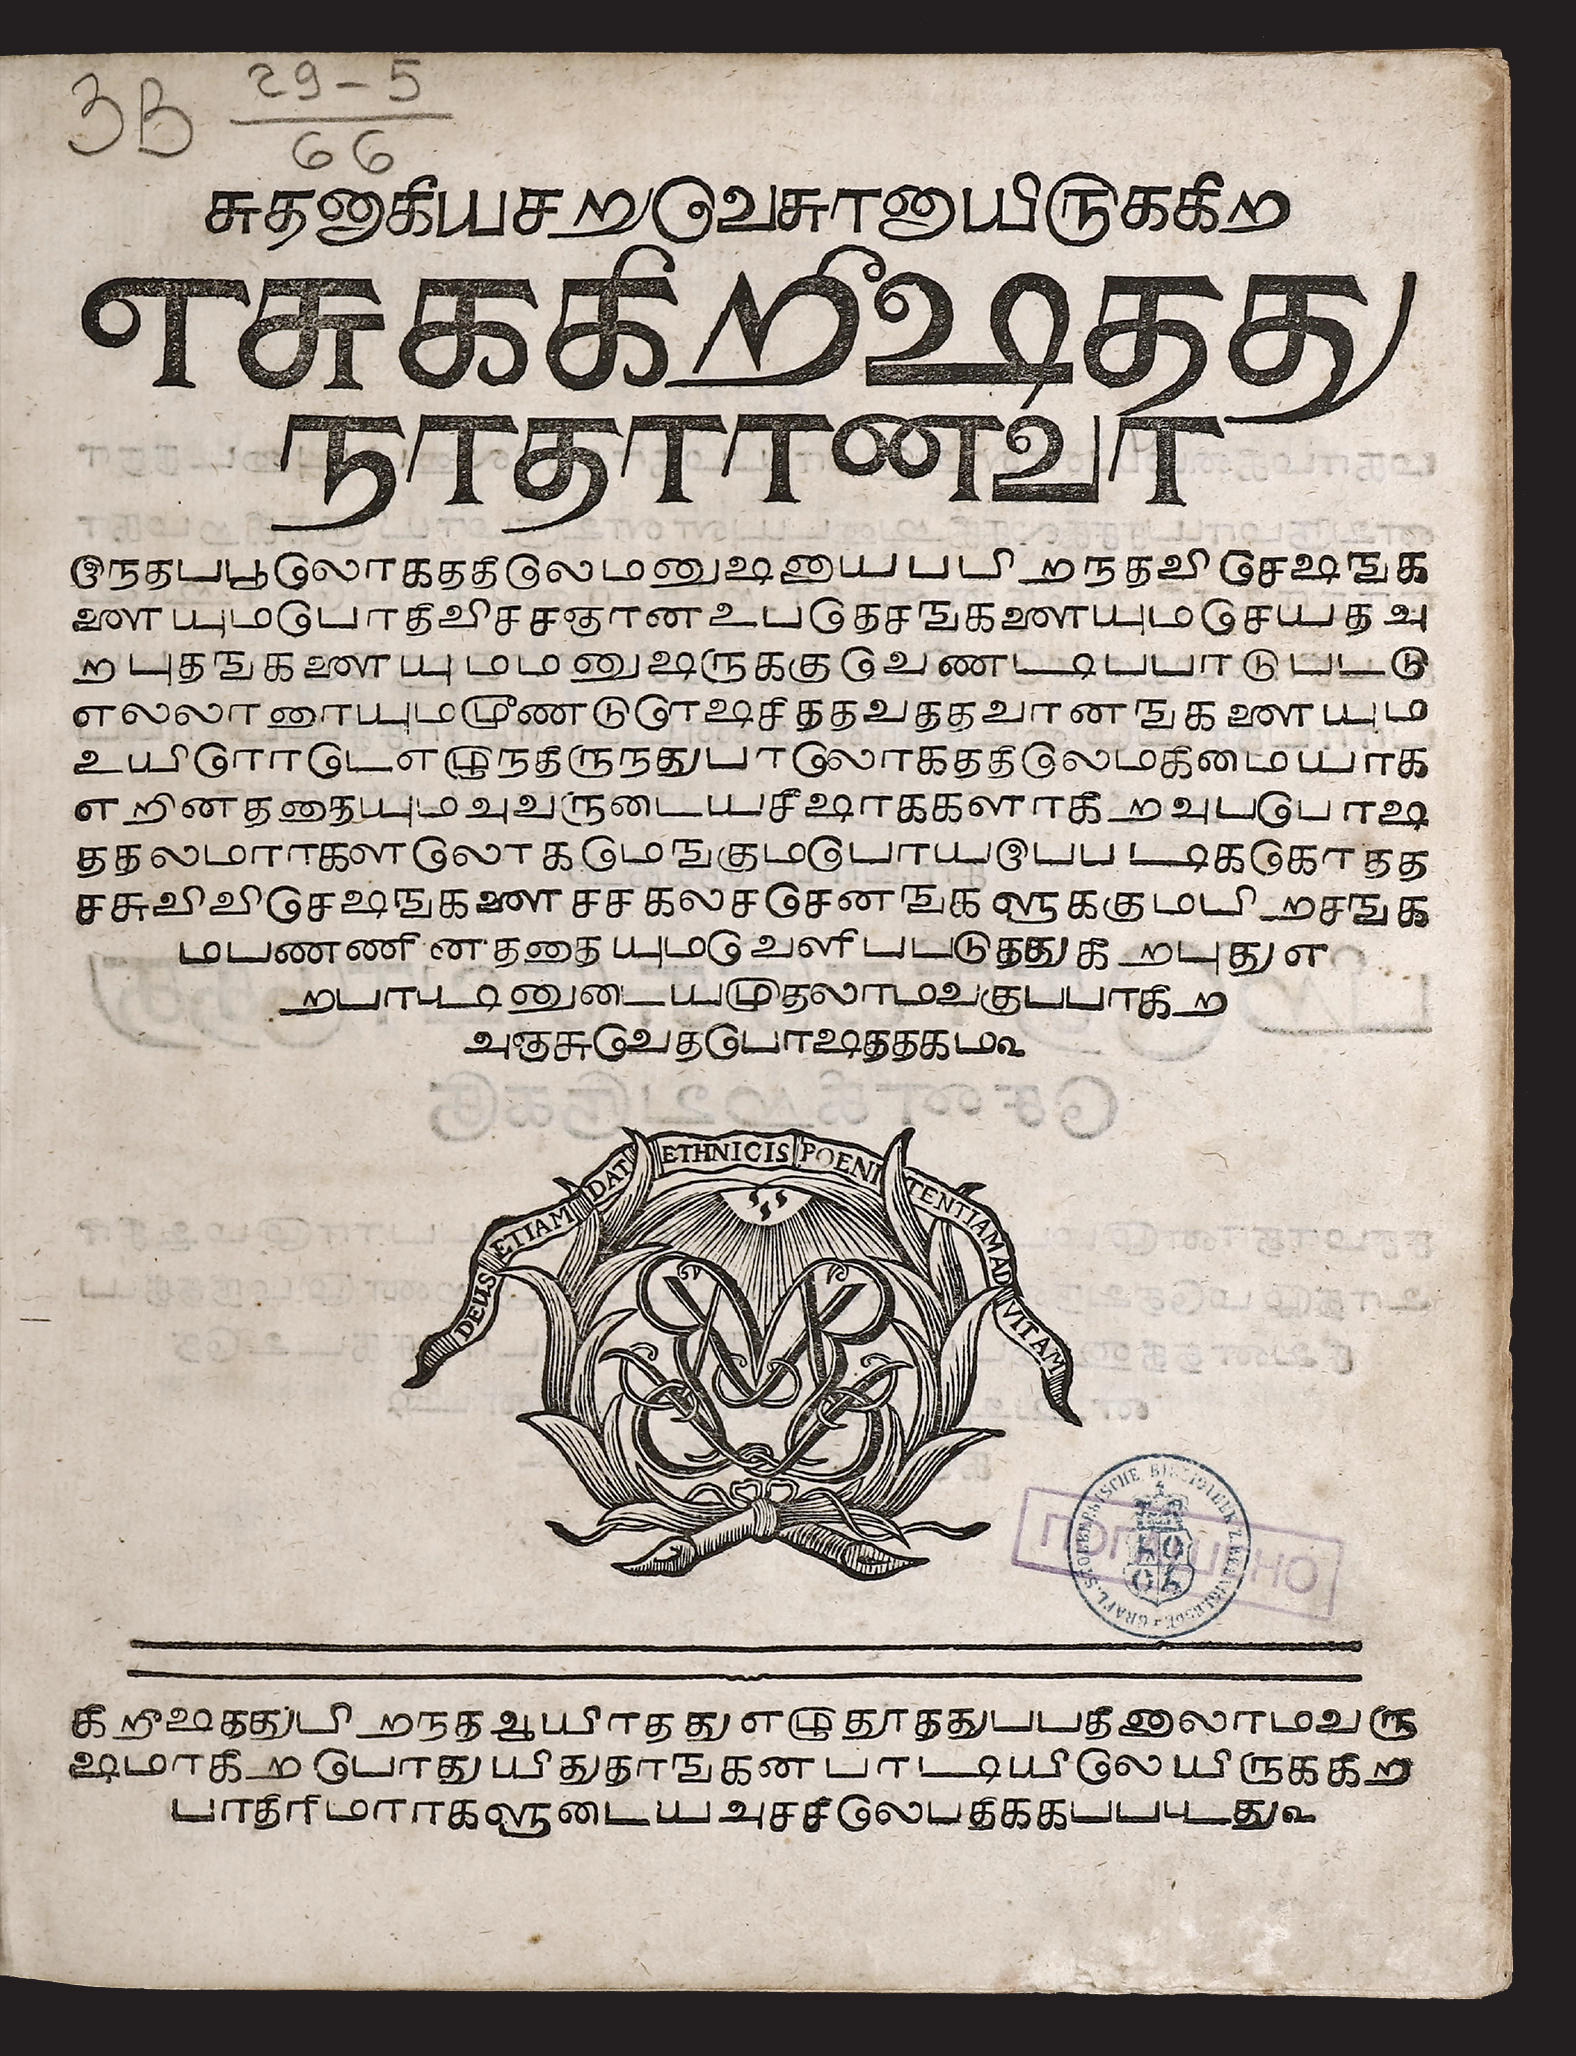 3B 29-5
66
சுதனாகியசறுவேசுரனாயிருககிற
எசுககிறிஷதது
நாதரானவர
இநதபபூலோகததிலேமனுஷனாயபபிறநதவிசேஷஙக
ளையுமபோதிவிசசஞானஉபதேசஙகளையுமசெயதஅ
றபுதஙகளையுமமனுஷருககுவேணடிபபாடுபடடு
எலலாரையுமமீணடுரெஷசிததவததவானஙகளையும
உயிரோடேஎழுநதிருநதுபரலோகததிலேமகிமையாக
எறினததையுமஅவருடையசீஷரககளாகிறஅபபோஷ
ததலமாரகளலோகமெஙகுமபோயயேபபடிககொதத
சசுவிவிசேஷஙகளைசசகலசெனஙகளுககுமபிறசஙக
மபணணினததையுமவெளிபபடுததுகிறபுதுஎ
றபாடடினுடையமுதலாமவகுபபாகிற
அஞசுவேதபொஷததகம௨
DEUS ETIAM DAT ETHNICIS POENITENTIAM AD VITAM
GRÄFL. STOLBERGISCHE BIBLIOTHEK Z. WERNIGERODE
கிறீஷததுபிறநதஆயிரததுஎழுநூததுபபதினாலாமவரு
ஷமாகிறபோதுயிதுதரஙகனபாடியிலேயிருககிற
பாதிரிமாரகளுடையஅசசிலேபதிககபபடடது௨